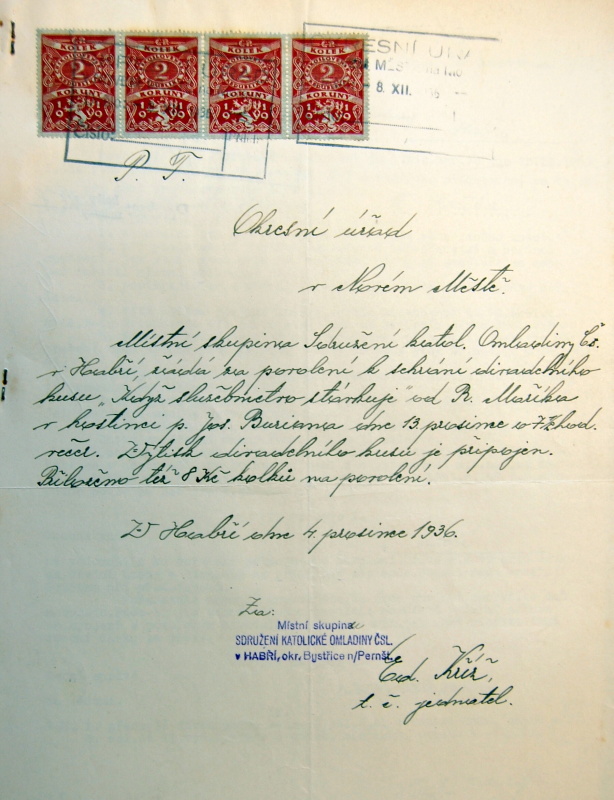 ČS KOLEK ČS KOLEK ČS KOLEK ČS KOLEK
2 2 2 2
KORUNY KORUNY KORUNY KORUNY
19 19 19 19
8. XII.
ČÍSLO:
P. T.
Okresní úřad
v Novém Městě.
Místní skupina Sdružení katol. Omladiny Čs.
v Habří, žádá za povolení k sehrání divadelního
kusu „Když služebnictvo stávkuje" od R. Maříka
v hostinci p. Jos. Buriana dne 13. prosince o 7½ hod.
večer. Výtisk divadelního kusu je připojen.
Přiloženo též 8 Kč kolků na povolení.
V Habří dne 4. prosince 1936.
Za:
Místní skupina
SDRUŽENÍ KATOLICKÉ OMLADINY ČSL.
v HABŘÍ, okr. Bystřice n/Pernšt.
Ed. Kříž,
t. č. jednatel.